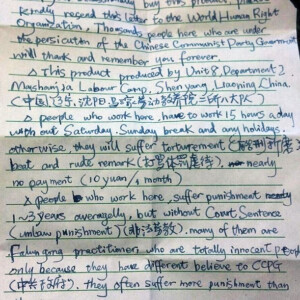 buy this product, please
kindly resend this letter to the World Human Right
Organization. Thousands people here who are under
the persicution of the Chinese Communist Party Government
will thank and remember you forever.
This product produced by Unit 8, Department 2,
Mashanjia Labour Camp, Shen yang, Liaoning, China.
(中国,辽宁,沈阳,马三家劳动教养院二所八大队)
people who work here, have to work 15 hours a day
with out Saturday, Sunday break and any holidays.
otherwise, they will suffer torturement
beat and rude remark nearly
no payment (10 yuan/1 month)
people who work here, suffer punishment nearly
1~3 years averagelly, but without Court Sentence
(unlaw punishment) (非法劳教). many of them are
Falun gong practitioner, who are totally innocent people
only because they have different believe to CCPG
they often suffer more punishment than